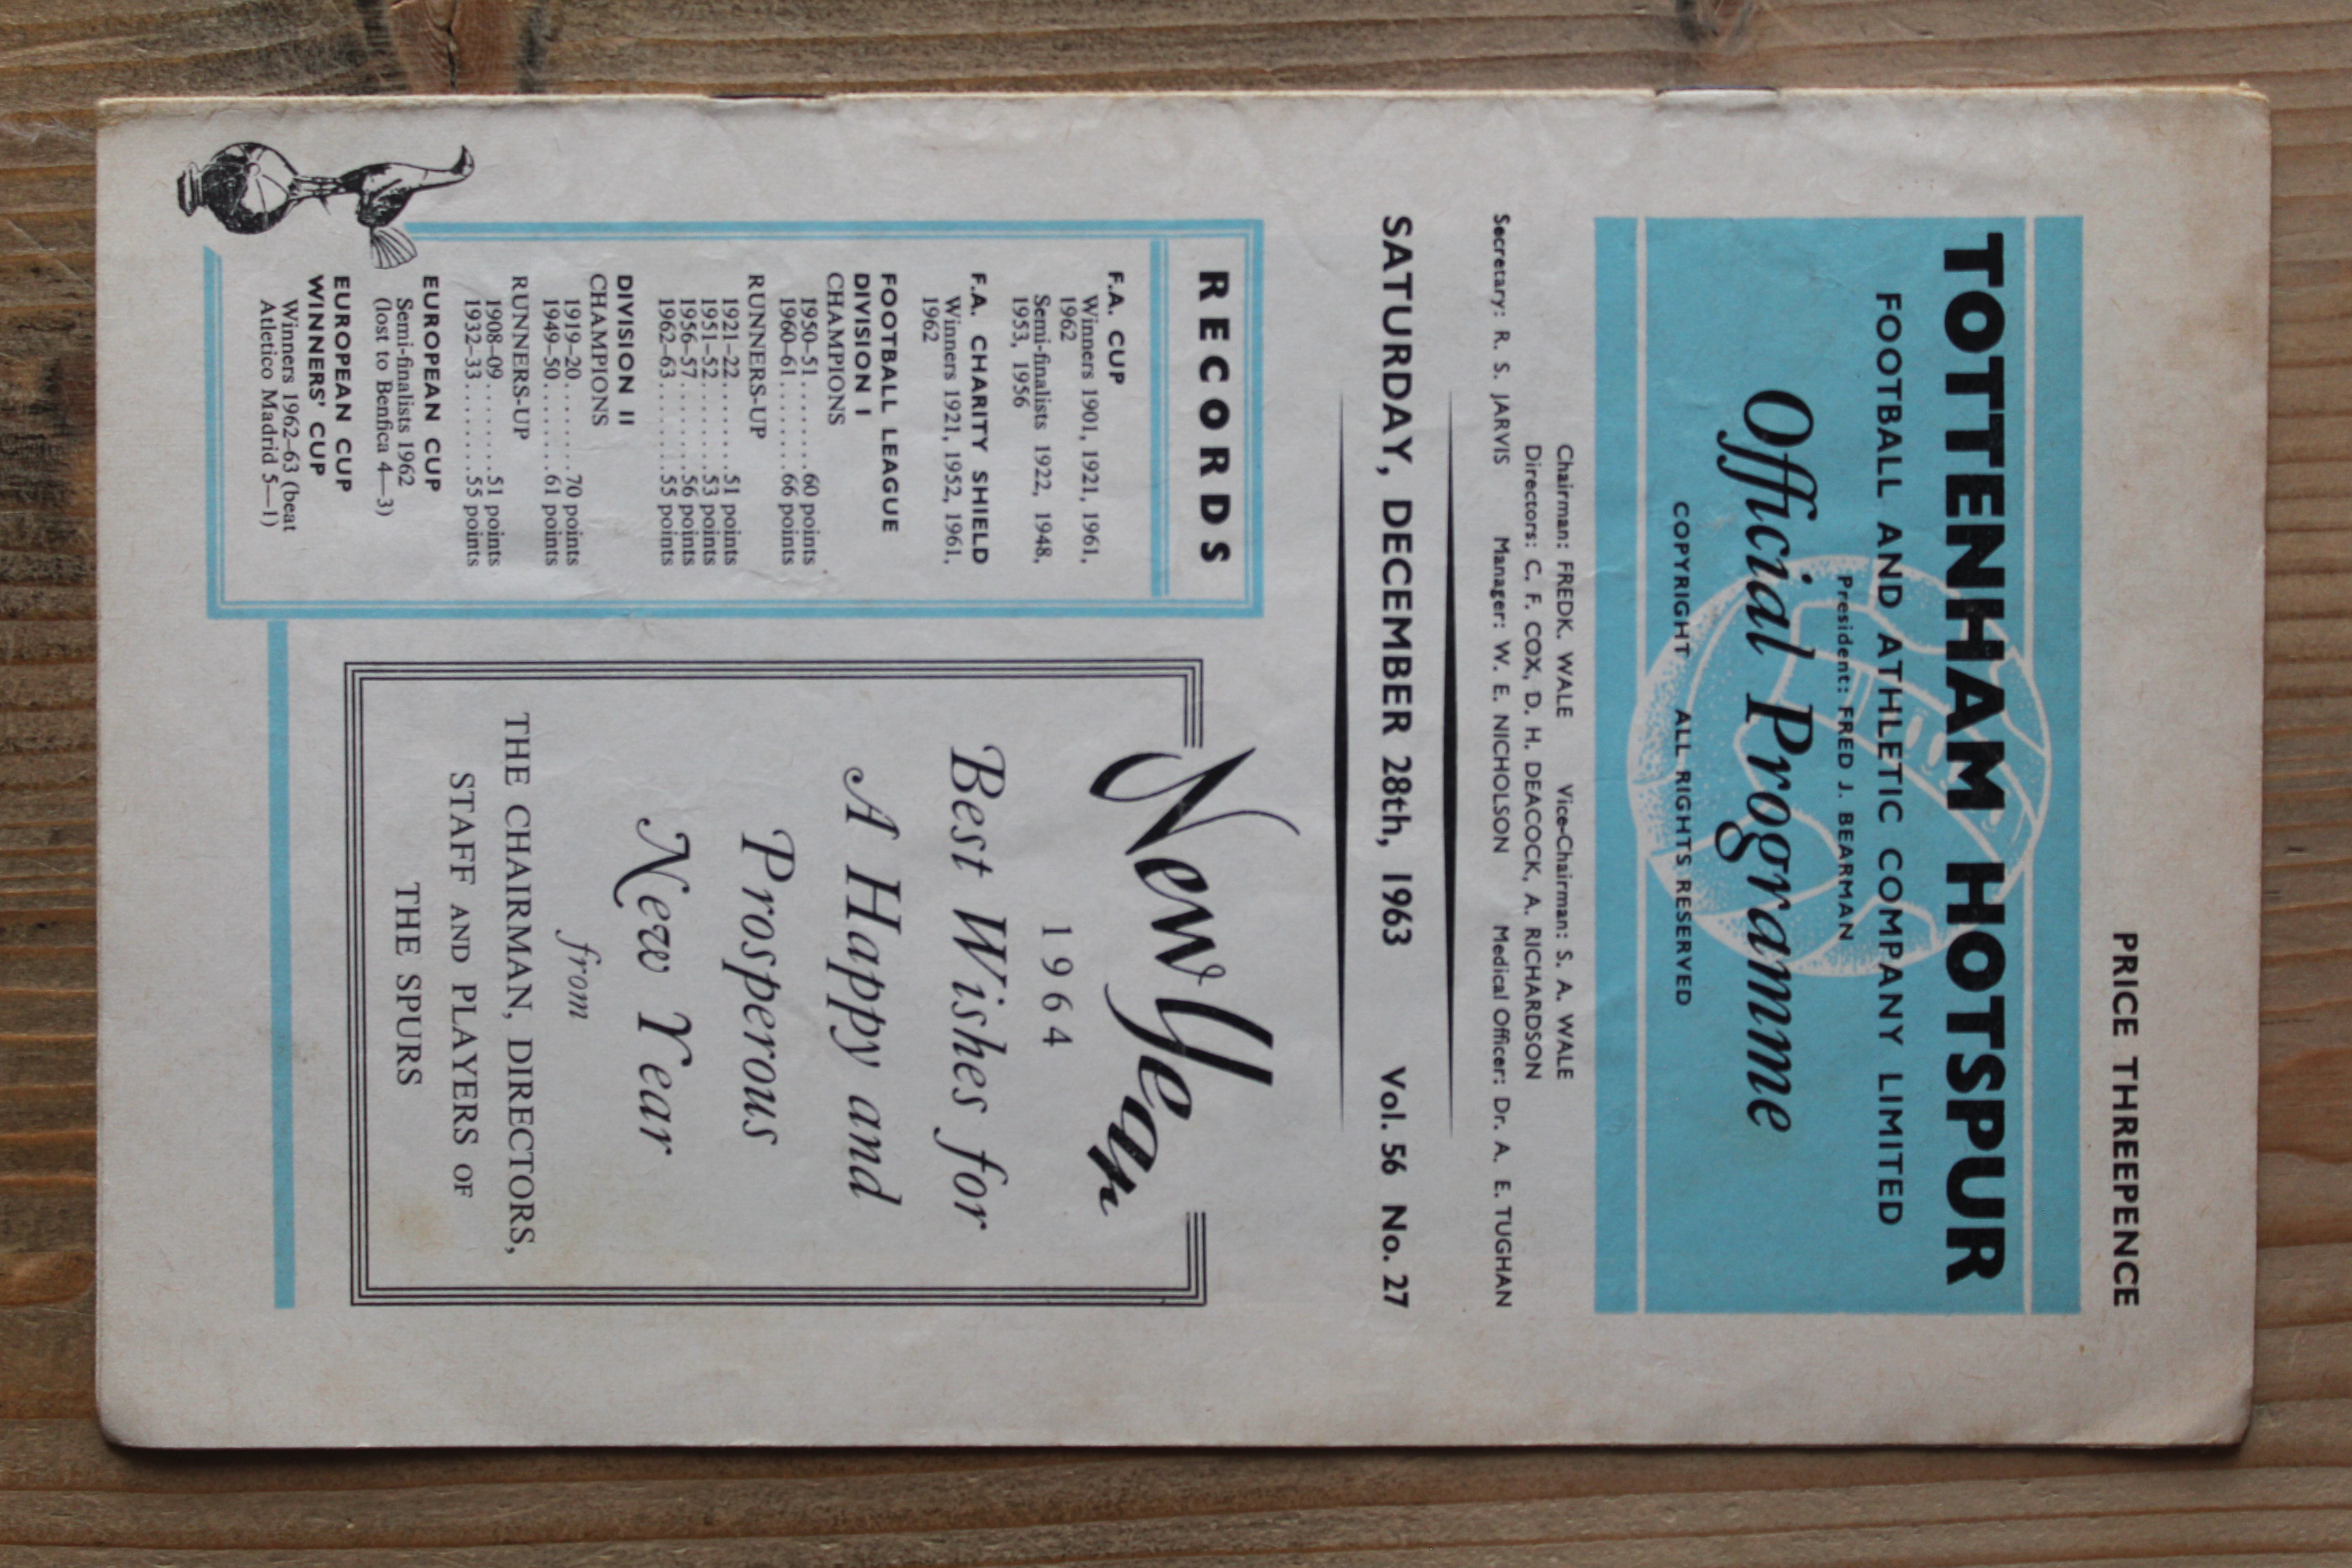 PRICE THREEPENCE
TOTTENHAM HOTSPUR
FOOTBALL AND ATHLETIC COMPANY LIMITED
President: FRED J. BEARMAN
Official Programme
COPYRIGHT ALL RIGHTS RESERVED
Chairman: FREDK. WALE Vice-Chairman: S. A. WALE
Directors: C. F. COX, D. H. DEACOCK, A. RICHARDSON
Secretary: R. S. JARVIS Manager: W. E. NICHOLSON Medical Officer: Dr. A. E. TUGHAN
SATURDAY, DECEMBER 28th, 1963 Vol. 56 No. 27
RECORDS
F.A. CUP
Winners 1901, 1921, 1961,
1962
Semi-finalists 1922, 1948,
1953, 1956
F.A. CHARITY SHIELD
Winners 1921, 1952, 1961,
1962
FOOTBALL LEAGUE
DIVISION I
CHAMPIONS
1950–51........60 points
1960–61........66 points
RUNNERS-UP
1921–22........51 points
1951–52........53 points
1956–57........56 points
1962–63........55 points
DIVISION II
CHAMPIONS
1919–20........70 points
1949–50........61 points
RUNNERS-UP
1908–09........51 points
1932–33........55 points
EUROPEAN CUP
Semi-finalists 1962
(lost to Benfica 4—3)
EUROPEAN CUP
WINNERS' CUP
Winners 1962–63 (beat
Atletico Madrid 5—1)
New Year
1964
Best Wishes for
A Happy and
Prosperous
New Year
from
THE CHAIRMAN, DIRECTORS,
STAFF AND PLAYERS OF
THE SPURS